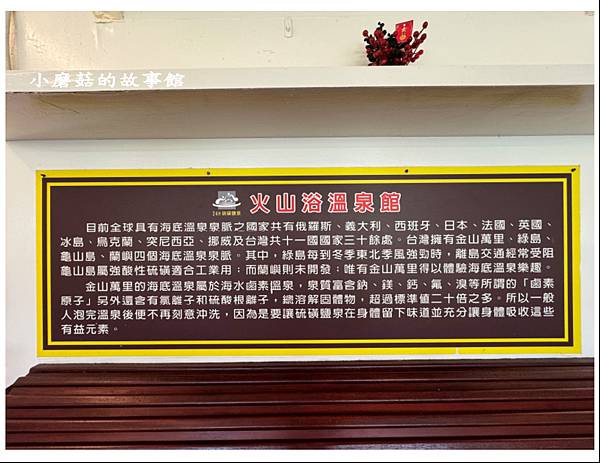 小磨菇的故事館
火山浴溫泉館
目前全球具有海底溫泉泉脈之國家共有俄羅斯、義大利、西班牙、日本、法國、英國、
冰島、烏克蘭、突尼西亞、挪威及台灣共十一國國家三十餘處。台灣擁有金山萬里、綠島、
龜山島、蘭嶼四個海底溫泉泉脈。其中，綠島每到冬季東北季風強勁時，離島交通經常受阻
龜山島屬強酸性硫磺適合工業用；而蘭嶼則未開發；唯有金山萬里得以體驗海底溫泉樂趣。
金山萬里的海底溫泉屬於海水鹵素溫泉，泉質富含鈉、鎂、鈣、氟、溴等所謂的「鹵素
原子」另外還含有氯離子和硫酸根離子，總溶解固體物，超過標準值二十倍之多。所以一般
人泡完溫泉後便不再刻意沖洗，因為是要讓硫磺鹽泉在身體留下味道並充分讓身體吸收這些
有益元素。